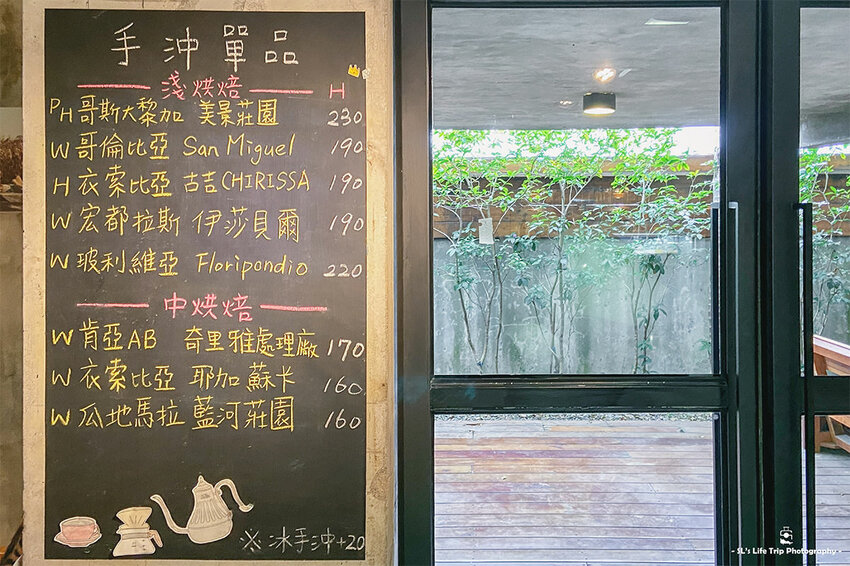 手沖單品
淺烘焙 H
PH 哥斯大黎加 美景莊園 230
W 哥倫比亞 San Miguel 190
H 衣索比亞 古吉 CHIRISSA 190
W 宏都拉斯 伊莎貝爾 190
W 玻利維亞 Floripondio 220
中烘焙
W 肯亞AB 奇里雅處理廠 170
W 衣索比亞 耶加 蘇卡 160
W 瓜地馬拉 藍河莊園 160
※ 冰手沖+20
- SL's Life Trip Photography -